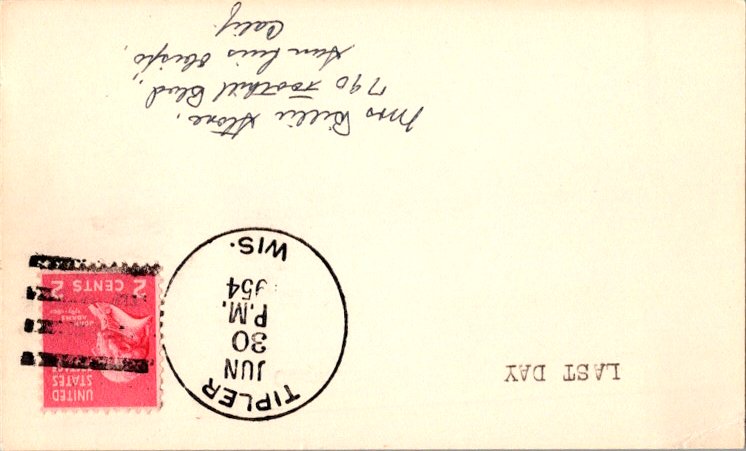 LAST DAY
TIPLER
JUN
30
P.M.
954
WIS.
UNITED
STATES
JOHN
ADAMS
2 CENTS 2
Mrs Billie Stone,
790 Foothill Blvd,
San Luis Obispo,
Calif